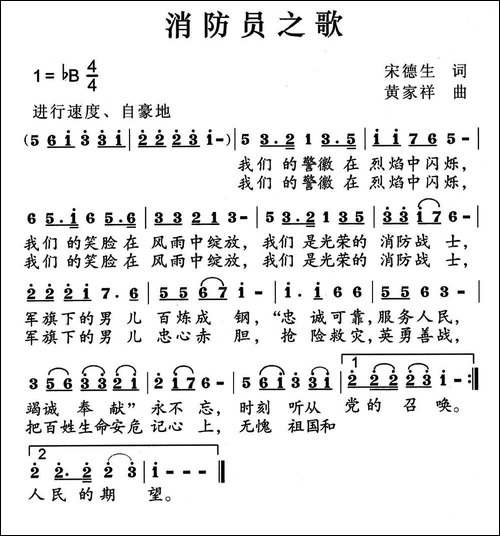 消防员之歌
1=♭B 4/4
宋德生 词
黄家祥 曲
进行速度、自豪地
(5 6 i 3 3 i | 2 2 2 3 i - -) | 5 3. 2 1 3. 5 | i i 7 6 5 - |
我们 的警徽 在 烈焰中闪烁,
我们 的警徽 在 烈焰中闪烁,
6 5. i 6 5. 6 | 3 3 2 1 3 - | 5 3. 2 1 2. 5 | 3 3 i 7 6 - |
我们 的笑脸在 风雨中绽放, 我们 是光荣的 消防战 士,
我们 的笑脸在 风雨中绽放, 我们 是光荣的 消防战 士,
2 2 2 i 7. 6 | 5 5 6 7 i - | i. i 6 6 - | 5. 5 3 3 - |
军旗下的男 儿 百炼成 钢, “忠 诚可靠,服务人民,
军旗下的男 儿 忠心赤 胆, 抢 险救灾,英勇善战,
3 5 6 3 3 2 1 | 2 i 7 6 - | 5 6 i 3 3 i | 1 2 2 2 2 3 i - :||
竭诚 奉 献” 永不 忘, 时刻 听从 党的 召 唤。
把百姓生命安危 记心 上, 无愧 祖国和
2
2 2. 2 2 3 | i - - - ||
人民 的期 望。